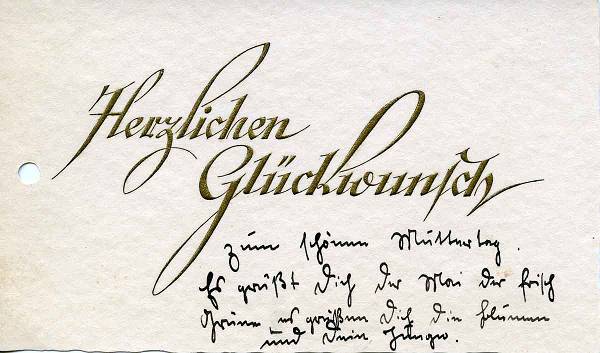 Herzlichen
Glückwunsch
zum schönen Muttertag.
Es grüßt Dich der Mai der frisch
Grüne es grüßen Dich die Blumen
und Dein